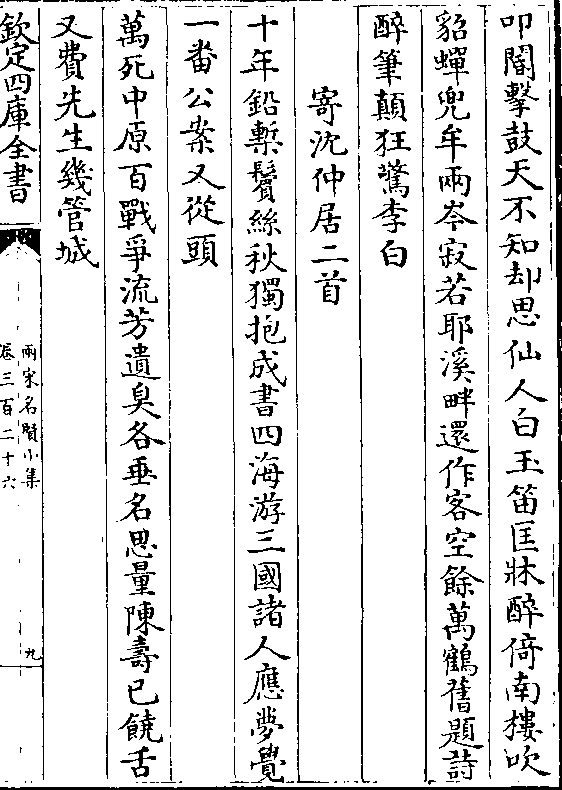 叩閽擊鼓天不知却思仙人白玉笛匡牀醉倚南樓吹
貂蟬兜牟兩岑寂若耶溪畔還作客空餘萬鶴舊題詩
醉筆顛狂驚李白
寄沈仲居二首
十年鉛槧鬢絲秋獨抱成書四海游三國諸人應夢覺
一番公案又從頭
萬死中原百戰爭流芳遺臭各垂名思量陳壽已饒舌
又費先生幾管城
欽定四庫全書
兩宋名賢小集
卷三百二十六
九